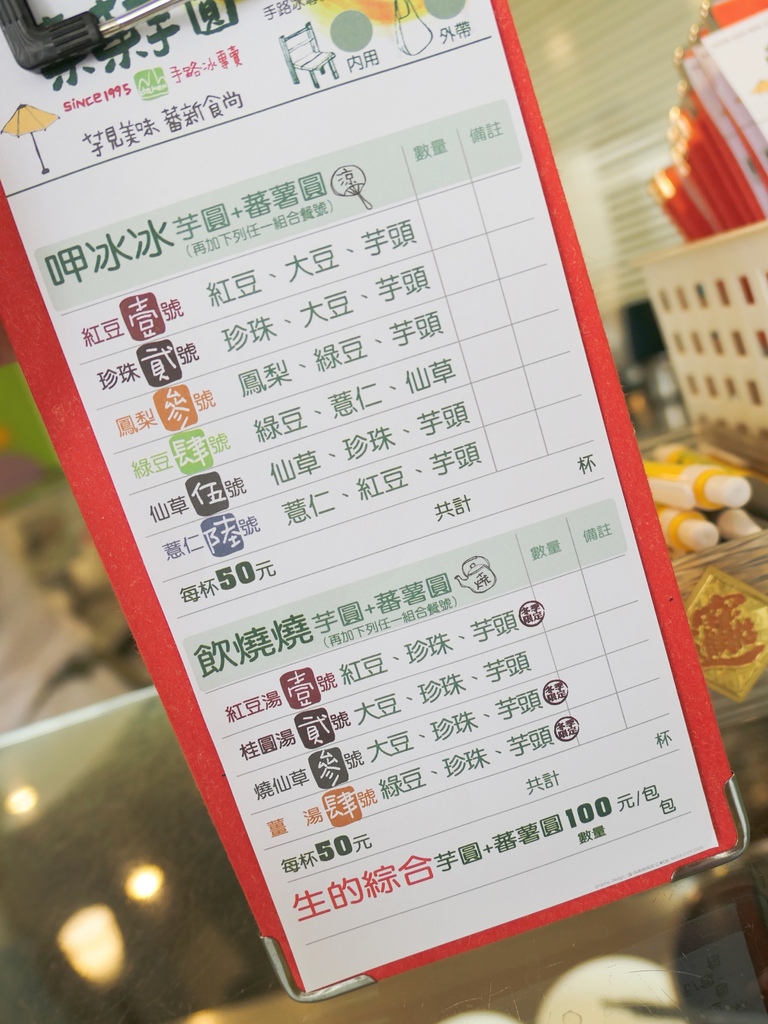 芋圓
手路冰
SINCE1995
手路冰專賣
內用
外帶
芋見美味 蕃新食尚
呷冰冰 芋圓+蕃薯圓 涼 數量 備註
(再加下列任一組合餐號)
紅豆壹號 紅豆、大豆、芋頭
珍珠貳號 珍珠、大豆、芋頭
鳳梨參號 鳳梨、綠豆、芋頭
綠豆肆號 綠豆、薏仁、仙草
仙草伍號 仙草、珍珠、芋頭
薏仁陸號 薏仁、紅豆、芋頭
每杯50元 共計 杯
飲燒燒 芋圓+蕃薯圓 燒 數量 備註
(再加下列任一組合餐號)
紅豆湯壹號 紅豆、珍珠、芋頭 冬季限定
桂圓湯貳號 大豆、珍珠、芋頭
燒仙草參號 大豆、珍珠、芋頭 冬季限定
薑 湯肆號 綠豆、珍珠、芋頭 冬季限定
每杯50元 共計 杯
生的綜合 芋圓+蕃薯圓 100 元/包 數量 包